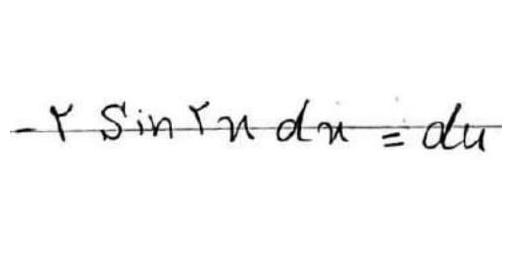 -۲ Sin ۲x dx = du